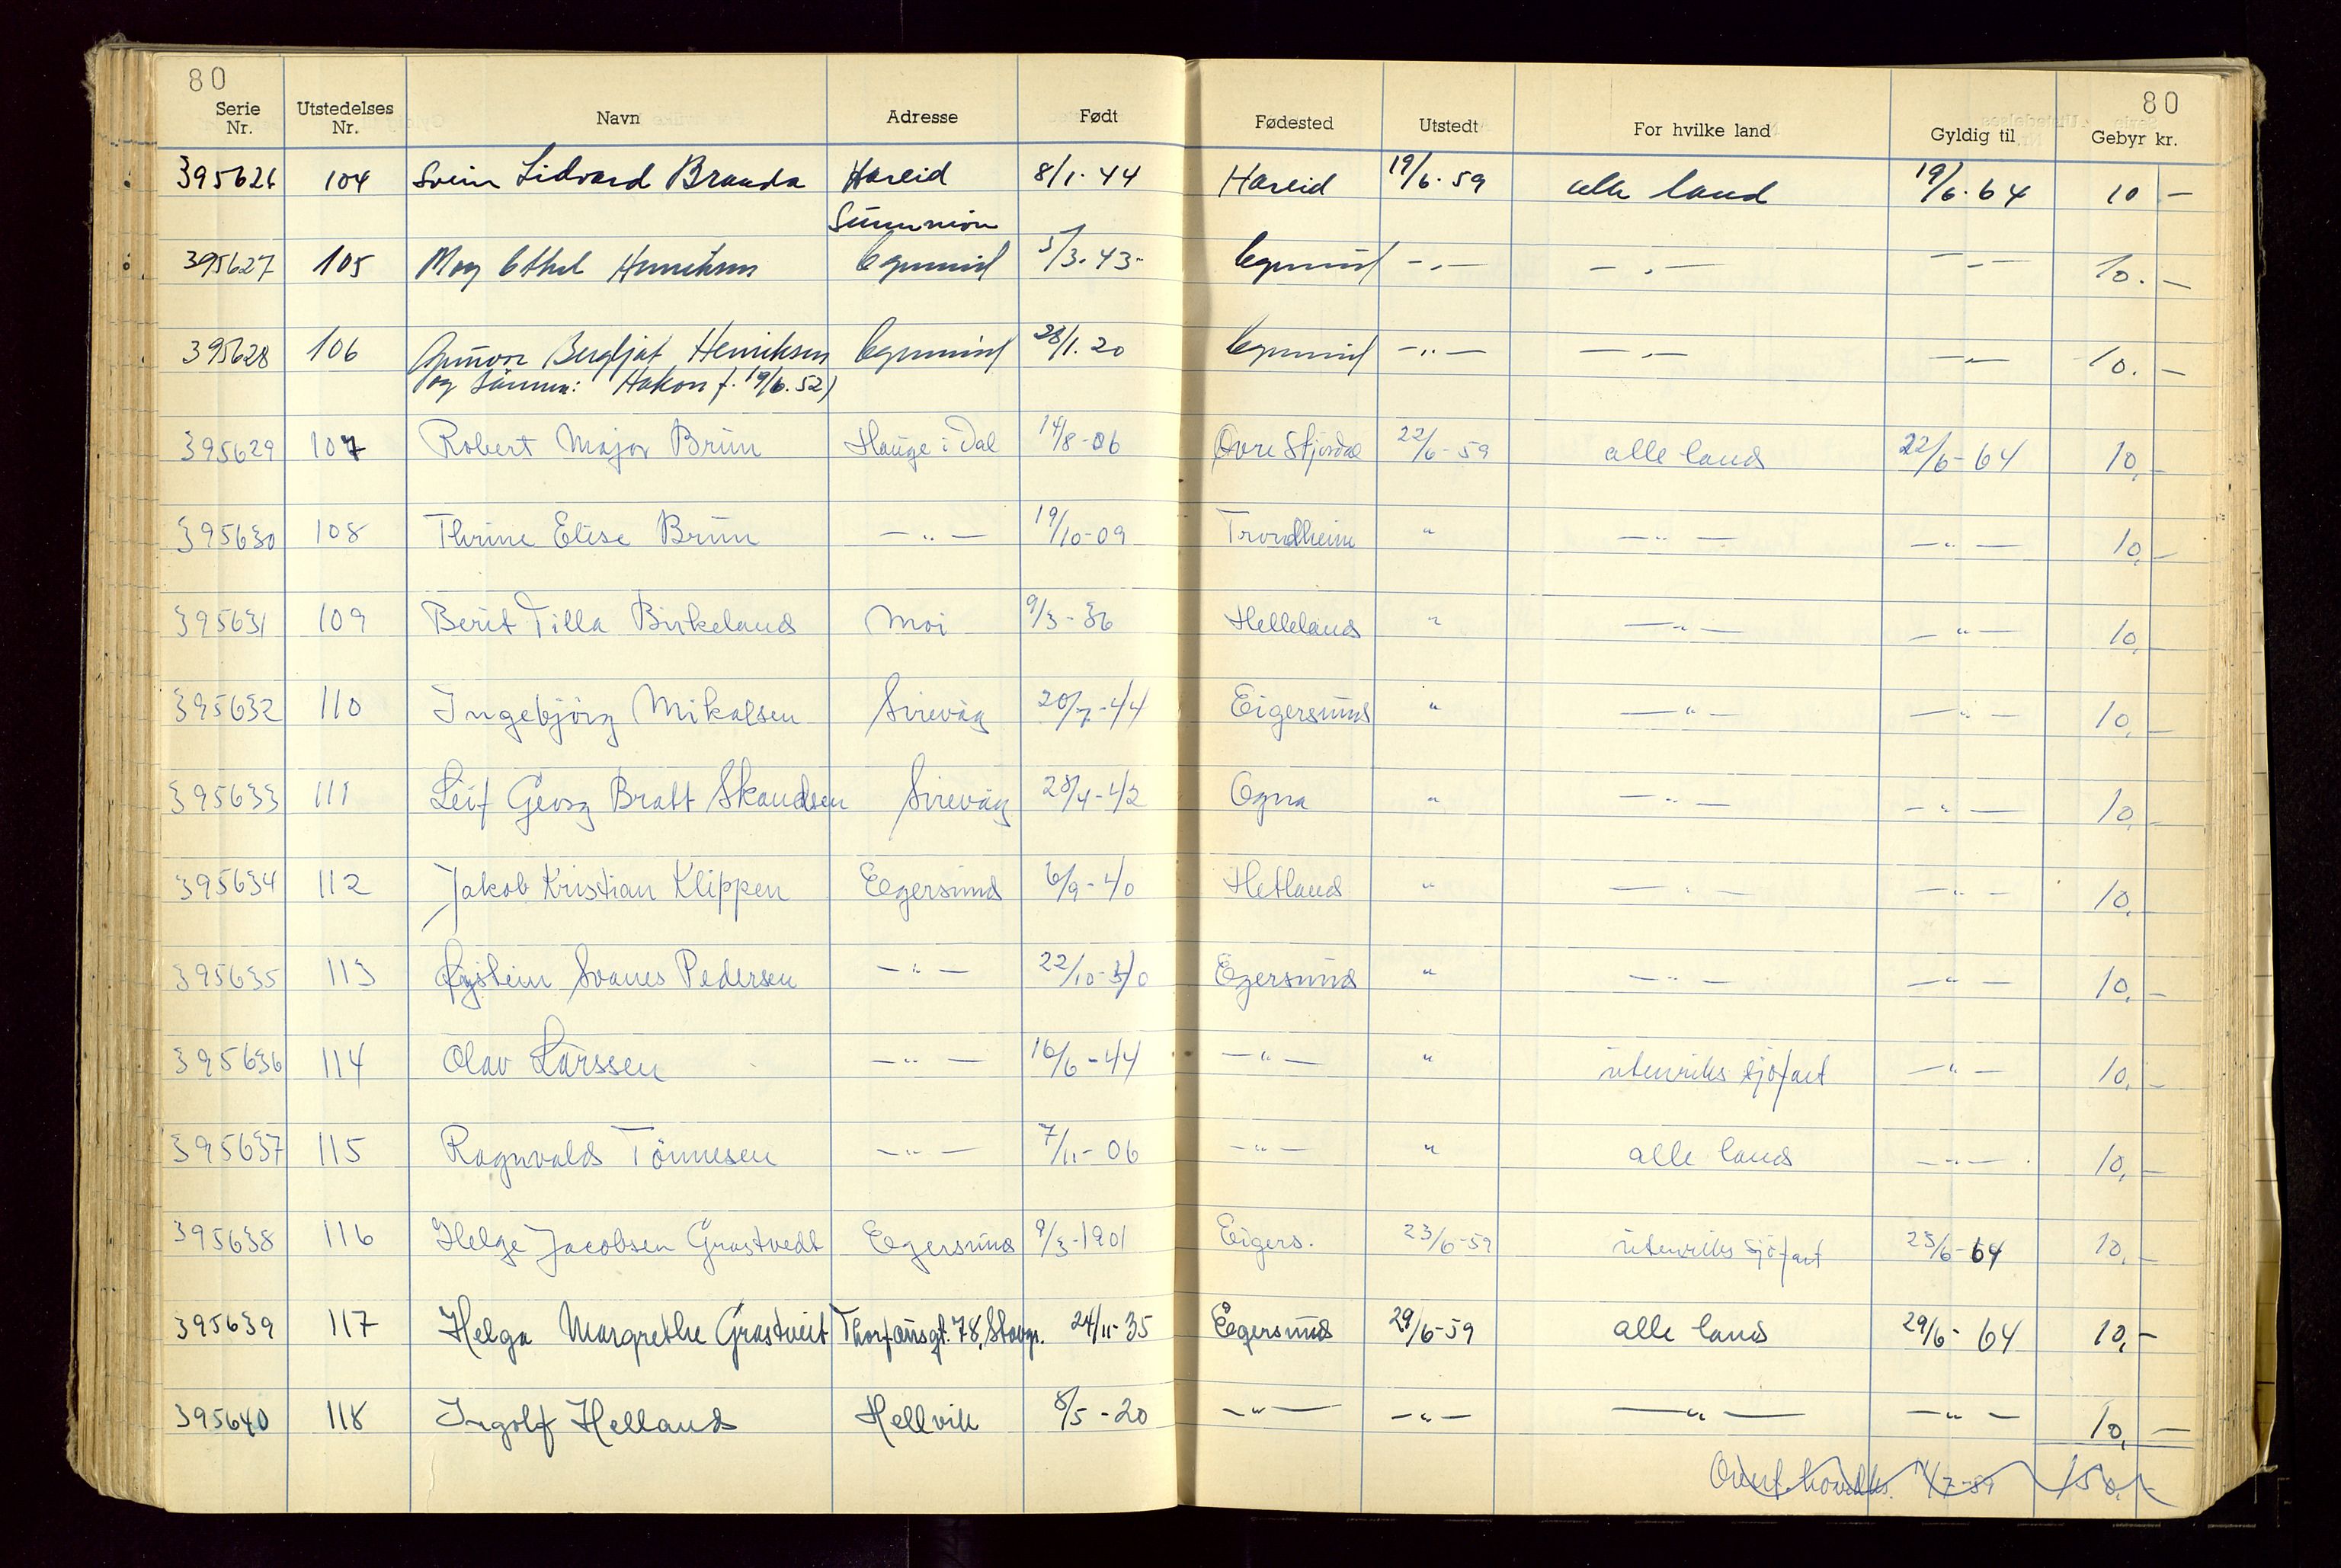 80
80
Serie Nr. Utstedelses Nr. Navn Adresse Født Fødested Utstedt For hvilke land Gyldig til Gebyr kr.
395626 104 Svein Sidvard Brauda Hareid 8/1-44 Hareid 19/6-59 alle land 19/6-64 10 -
Sunnmøre
395627 105 May Ethel Henriksen Egersund 5/3-43- Egersund -"- -"- -"- 10.-
395628 106 Gunvor Bergljot Henriksen Egersund 28/1-20 Egersund -"- -"- -"- 10.-
(og sønnen: Håkon f. 19/6.52)
395629 107 Robert Major Brun Hauge i Dal 14/8-06 Øvre Stjørdal 22/6-59 alle land 22/6-64 10,-
395630 108 Thrine Elise Brun -"- 19/10-09 Trondheim " -"- -"- 10,-
395631 109 Berit Tilla Birkeland Moi 9/3-36 Helleland " -"- -"- 10,-
395632 110 Ingebjörg Mikalsen Sirevåg 20/7-44 Eigersund " -"- -"- 10,-
395633 111 Leif Georg Bratt Skandsen Sirevåg 28/4-42 Ogna " -"- -"- 10,-
395634 112 Jakob Kristian Klippen Egersund 6/9-40 Hetland " -"- -"- 10,-
395635 113 Øystein Svanes Pedersen -"- 22/10-40 Egersund " -"- -"- 10,-
395636 114 Olav Larssen -"- 16/6-44 -"- " utenriks sjöfart -"- 10,-
395637 115 Ragnvald Tönnesen -"- 7/11-06 -"- " alle land -"- 10,-
395638 116 Helge Jacobsen Grastvedt Egersund 9/3-1901 Eigers. 23/6-59 utenriks sjöfart 23/6-64 10,-
395639 117 Helga Margrethe Grastveit Thorfansgt. 78, Stavgr. 24/11-35 Egersund 29/6-59 alle land 29/6-64 10,-
395640 118 Ingolf Helland Hellvik 8/5-20 -"- -"- -"- -"- 10,-
1/7-59 150,-